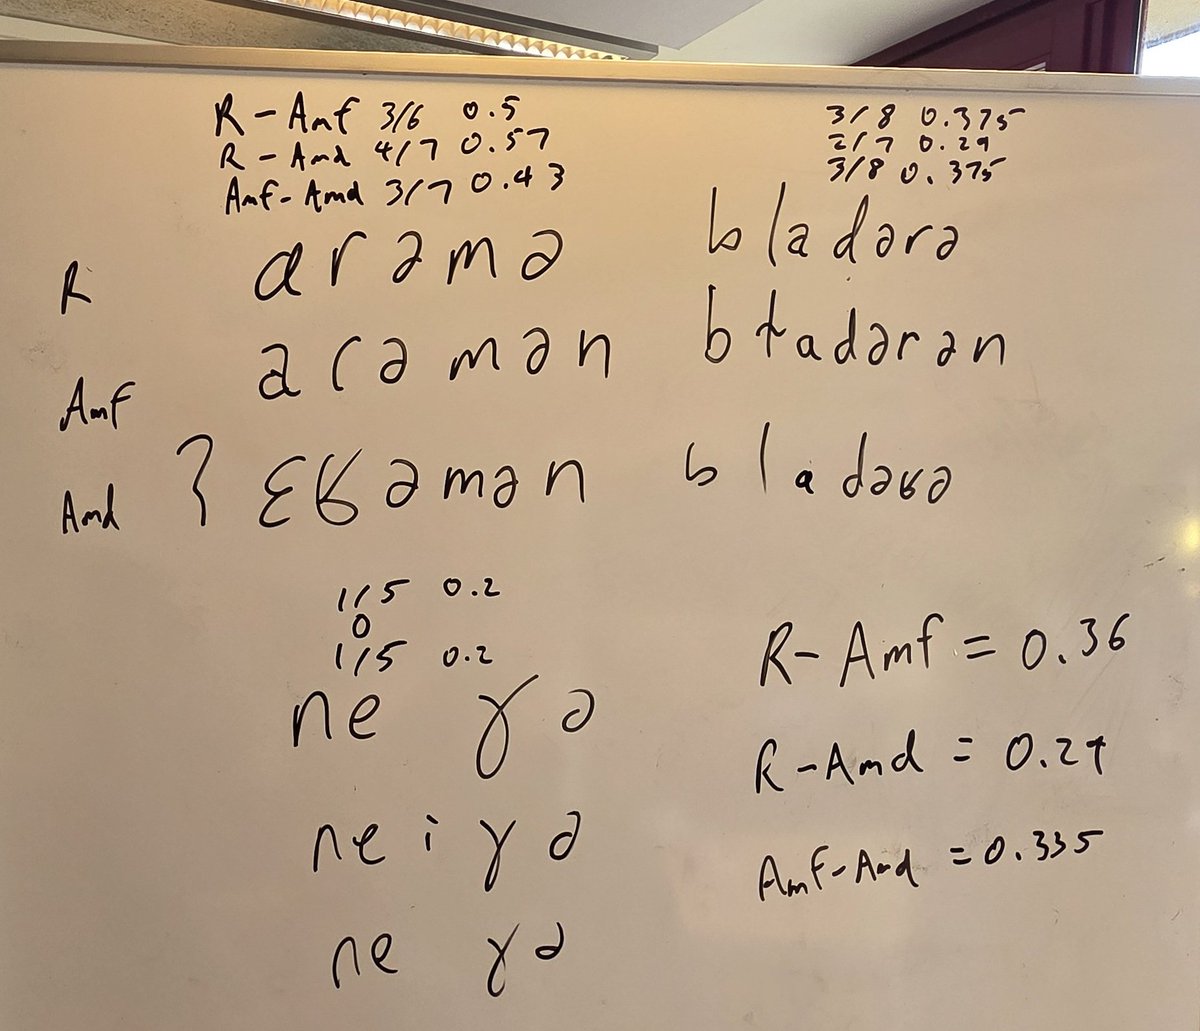 R - Amf 3/6 0.5
R - Amd 4/7 0.57
Amf - Amd 3/7 0.43
3/8 0.375
2/7 0.29
3/8 0.375
R arəmə bladərə
Amf arəmən bɫadərən
Amd ʔɛʁəmən bladəʁə
1/5 0.2
0
1/5 0.2
ne ɣə
neiɣə
ne ɣə
R - Amf = 0.36
R - Amd = 0.29
Amf - Amd = 0.335